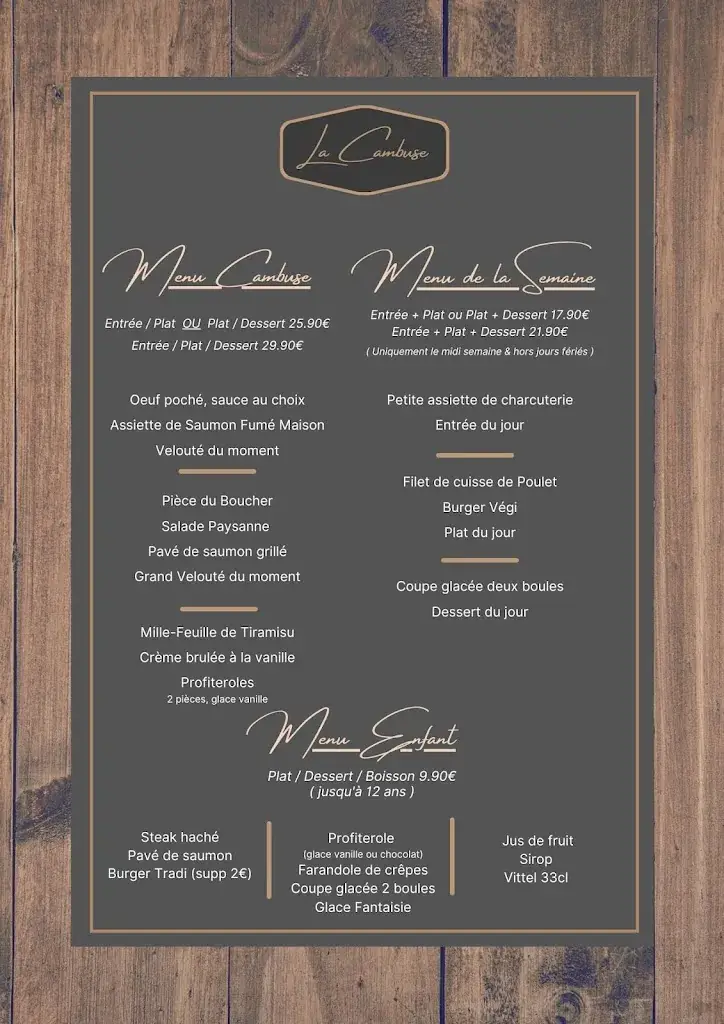 La Cambuse
Menu Cambuse
Entrée / Plat OU Plat / Dessert 25.90€
Entrée / Plat / Dessert 29.90€
Oeuf poché, sauce au choix
Assiette de Saumon Fumé Maison
Velouté du moment
Pièce du Boucher
Salade Paysanne
Pavé de saumon grillé
Grand Velouté du moment
Mille-Feuille de Tiramisu
Crème brulée à la vanille
Profiteroles
2 pièces, glace vanille
Menu de la Semaine
Entrée + Plat ou Plat + Dessert 17.90€
Entrée + Plat + Dessert 21.90€
( Uniquement le midi semaine & hors jours fériés )
Petite assiette de charcuterie
Entrée du jour
Filet de cuisse de Poulet
Burger Végi
Plat du jour
Coupe glacée deux boules
Dessert du jour
Menu Enfant
Plat / Dessert / Boisson 9.90€
( jusqu'à 12 ans )
Steak haché
Pavé de saumon
Burger Tradi (supp 2€)
Profiterole
(glace vanille ou chocolat)
Farandole de crêpes
Coupe glacée 2 boules
Glace Fantaisie
Jus de fruit
Sirop
Vittel 33cl